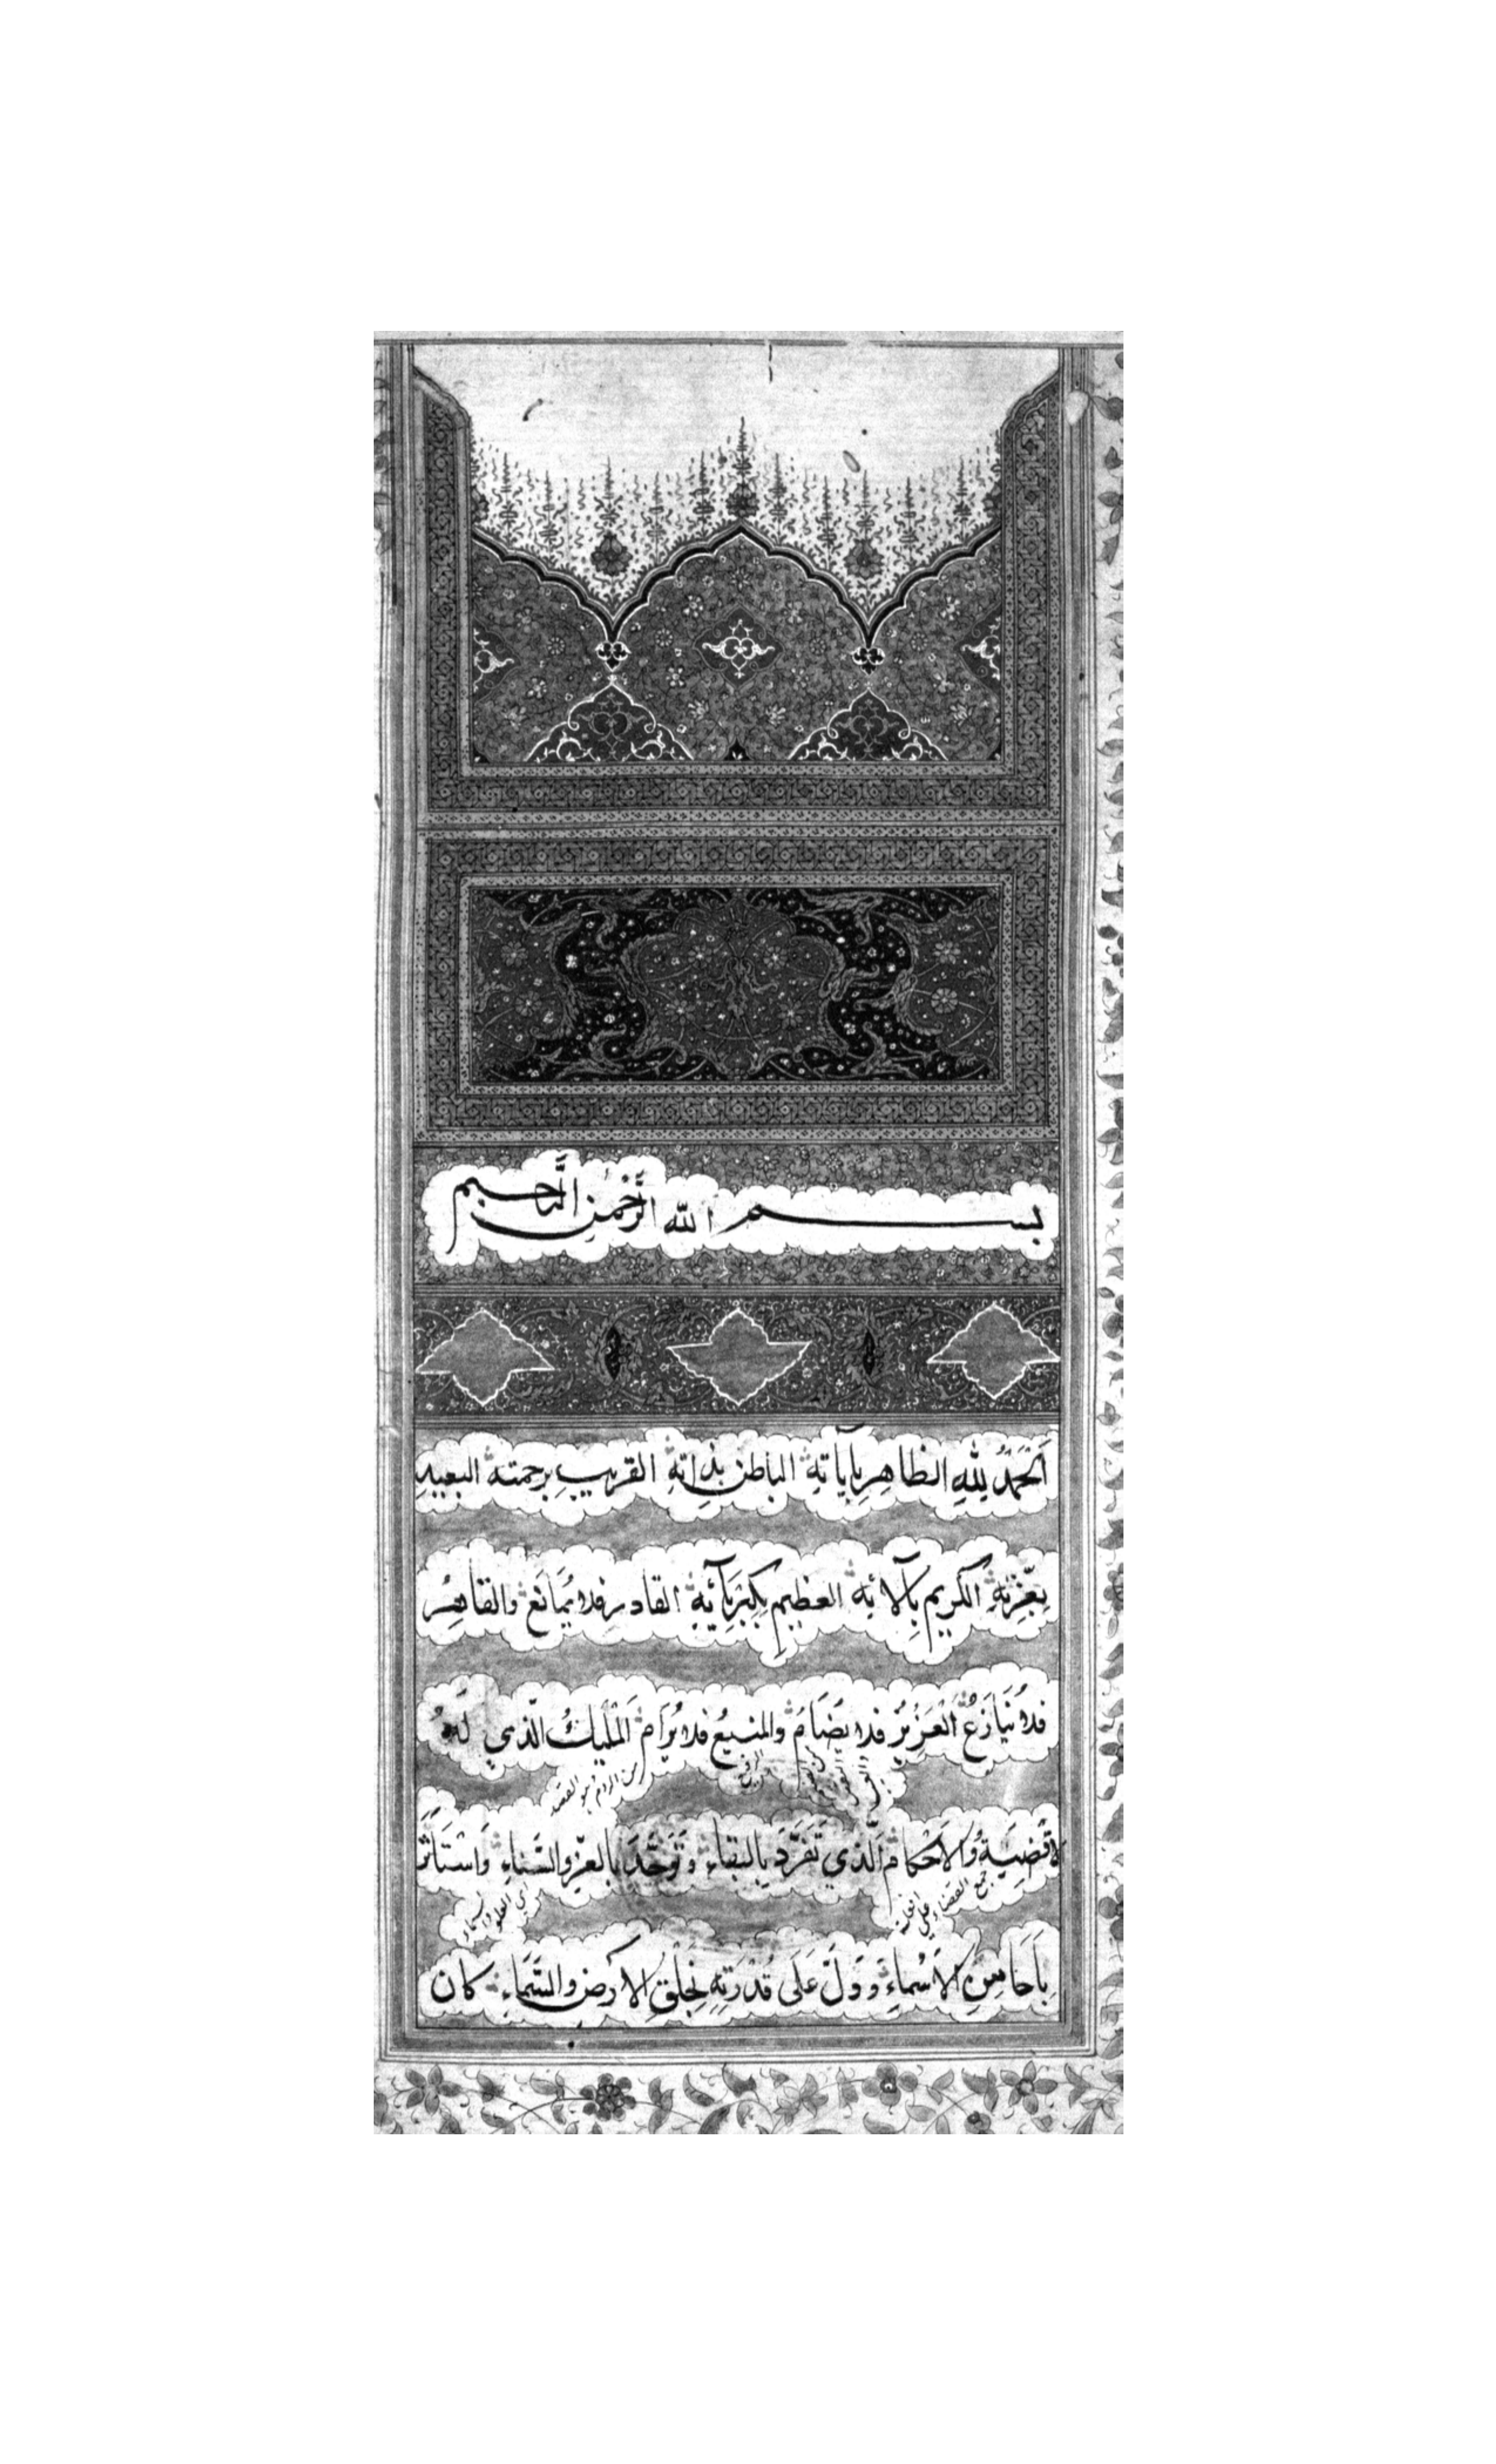 بسم الله الرحمن الرحيم
اَلْحَمْدُ لِلّهِ الظاهِرِ بِآياتِهِ الباطن بذاتِهِ القريبِ برحمته البعيد
بِعِزّتِهِ الكريم بِآلائه العظيم بِكِبْرِيآئِهِ القادر فلا يُمانَع والقاهِرُ
فلا يُنازَعُ الْعَزِيْزُ فلا يُضَامُ والمنيعُ فلا يُرَامُ الْمَلِيكُ الّذي لَهُ
الاقْضِيَةُ وَالاَحْكامُ الّذي تَفَرَّدَ بالبقاء وَتَوَحَّدَ بالعِزّ والسَّناءِ وَاسْتَأثَرَ
من الرام هو القصد
جمع القضاء علي افعلة
اي العلو
بِاَحَاسِنِ الاَسْماءِ وَدَلَّ عَلَى قُدْرَتِهِ بِخَلْقِ الارض والسَّماءِ كان